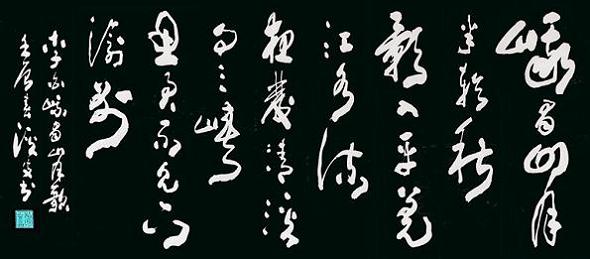 峨眉山月
半輪秋
影入平羌
江水流
夜發清溪
向三峽
思君不見下
渝州
李白峨眉山月歌
壬辰春